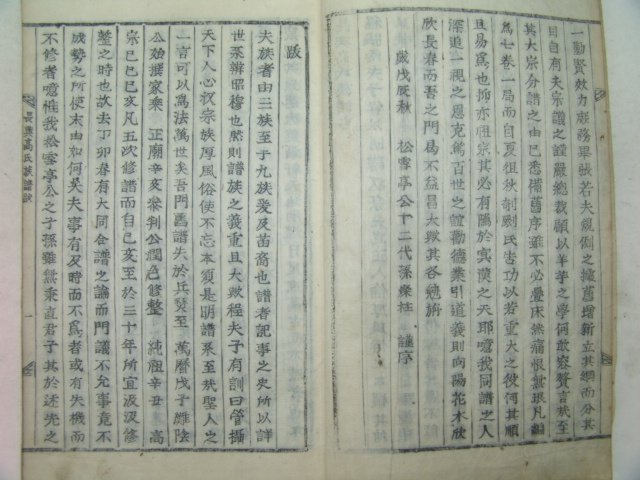 一勤賢效力廢務畢張若夫規例之據舊增新立其綱而分其
目自有夫宗議之謹嚴總裁顧以羊芋之學何敢容贅言於至
其大宗分譜之由已悉備舊序雖不必疊床然痛恨無珉凡編
爲七卷一局而自夏徂秋剞劂氏告功以若重大之役何其順
且易爲也抑亦祖宗其必有隲於冥漠之天耶噫我同譜之人
深追一視之恩克篤百世之誼勸德業引道義則向陽花木欣
欣長春而吾之門爲不益昌大歟其各勉旃
歲戊辰秋 松雪亭公十二代孫 謹序
跋
夫族者由三族至于九族爰及苗裔也譜者記事之史所以詳
世系辨昭穆也然則譜族之義重且大歟程夫子有訓曰管攝
天下人心收宗族厚風俗使不忘本須是明譜系至哉聖人之
一言可以爲法萬世矣吾門舊譜失於兵燹至 萬曆戊子雒陰
公始撰家乘 正廟辛亥參判公潤色修整 純祖辛丑 高
宗己巳己亥凡五次修譜而自己亥至於三十年所宜汲汲修
整之時也故去丁卯春有大同合譜之論而門議不允事竟不
成勢之所使末由如何矣夫事有及時而不爲者或有失機而
不修者噫惟我松雪亭公之子孫雖無秉直君子其於述先之
長興高氏族譜跋 一